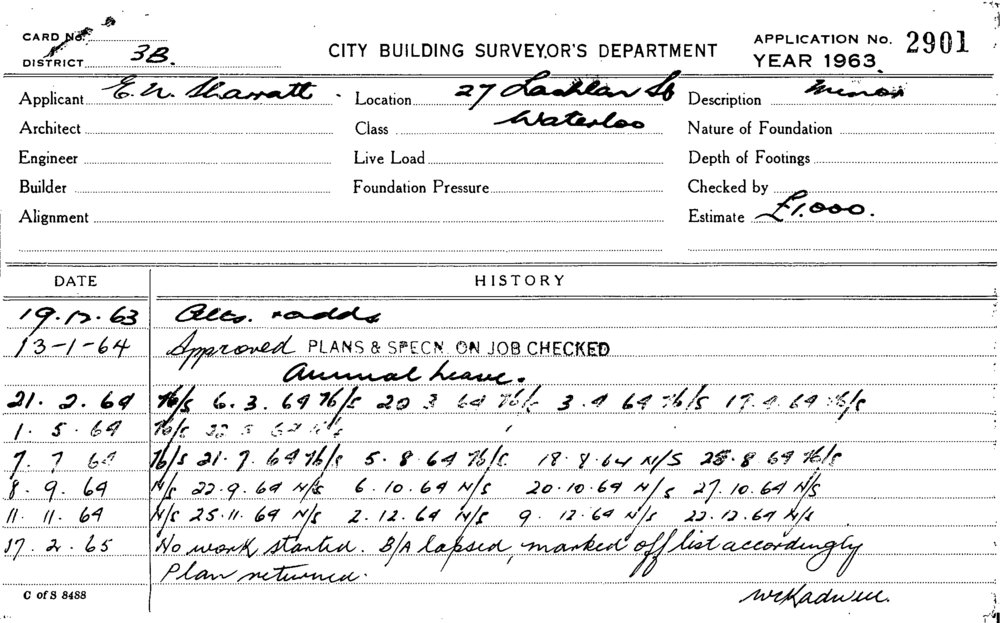 CARD No.
DISTRICT 3B.
CITY BUILDING SURVEYOR'S DEPARTMENT
APPLICATION No. 2901
YEAR 1963.
Applicant E. N. Sharratt. Location 27 Lachlan St Description Minor
Architect Class Waterloo Nature of Foundation
Engineer Live Load Depth of Footings
Builder Foundation Pressure Checked by
Alignment Estimate £1,000.
DATE HISTORY
19.12.63 Alts. + adds
13-1-64 Approved PLANS & SPECN. ON JOB CHECKED
Annual Leave.
21. 2. 64 N/S 6. 3. 64 N/S 20 3 64 N/S 3. 4 64 N/S 17. 4. 64 N/S
1. 5. 64 N/S 22 5 64 N/S
7. 7 64 N/S 21. 7. 64 N/S 5. 8. 64 N/S 18. 8. 64 N/S 25. 8 64 N/S
8. 9. 64 N/S 22. 9. 64 N/S 6. 10. 64 N/S 20. 10. 64 N/S 27. 10. 64 N/S
11. 11. 64 N/S 25. 11. 64 N/S 2. 12. 64 N/S 9. 12. 64 N/S 22. 12. 64 N/S
17. 2. 65 No work started. B/A lapsed, marked off list accordingly
Plan returned.
C of S 8488